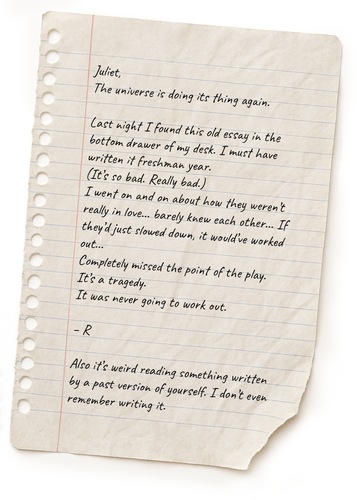 Juliet,
The universe is doing its thing again.
Last night I found this old essay in the
bottom drawer of my desk. I must have
written it freshman year.
(It's so bad. Really bad.)
I went on and on about how they weren't
really in love... barely knew each other... If
they'd just slowed down, it would've worked
out...
Completely missed the point of the play.
It's a tragedy.
It was never going to work out.
- R
Also it's weird reading something written
by a past version of yourself. I don't even
remember writing it.